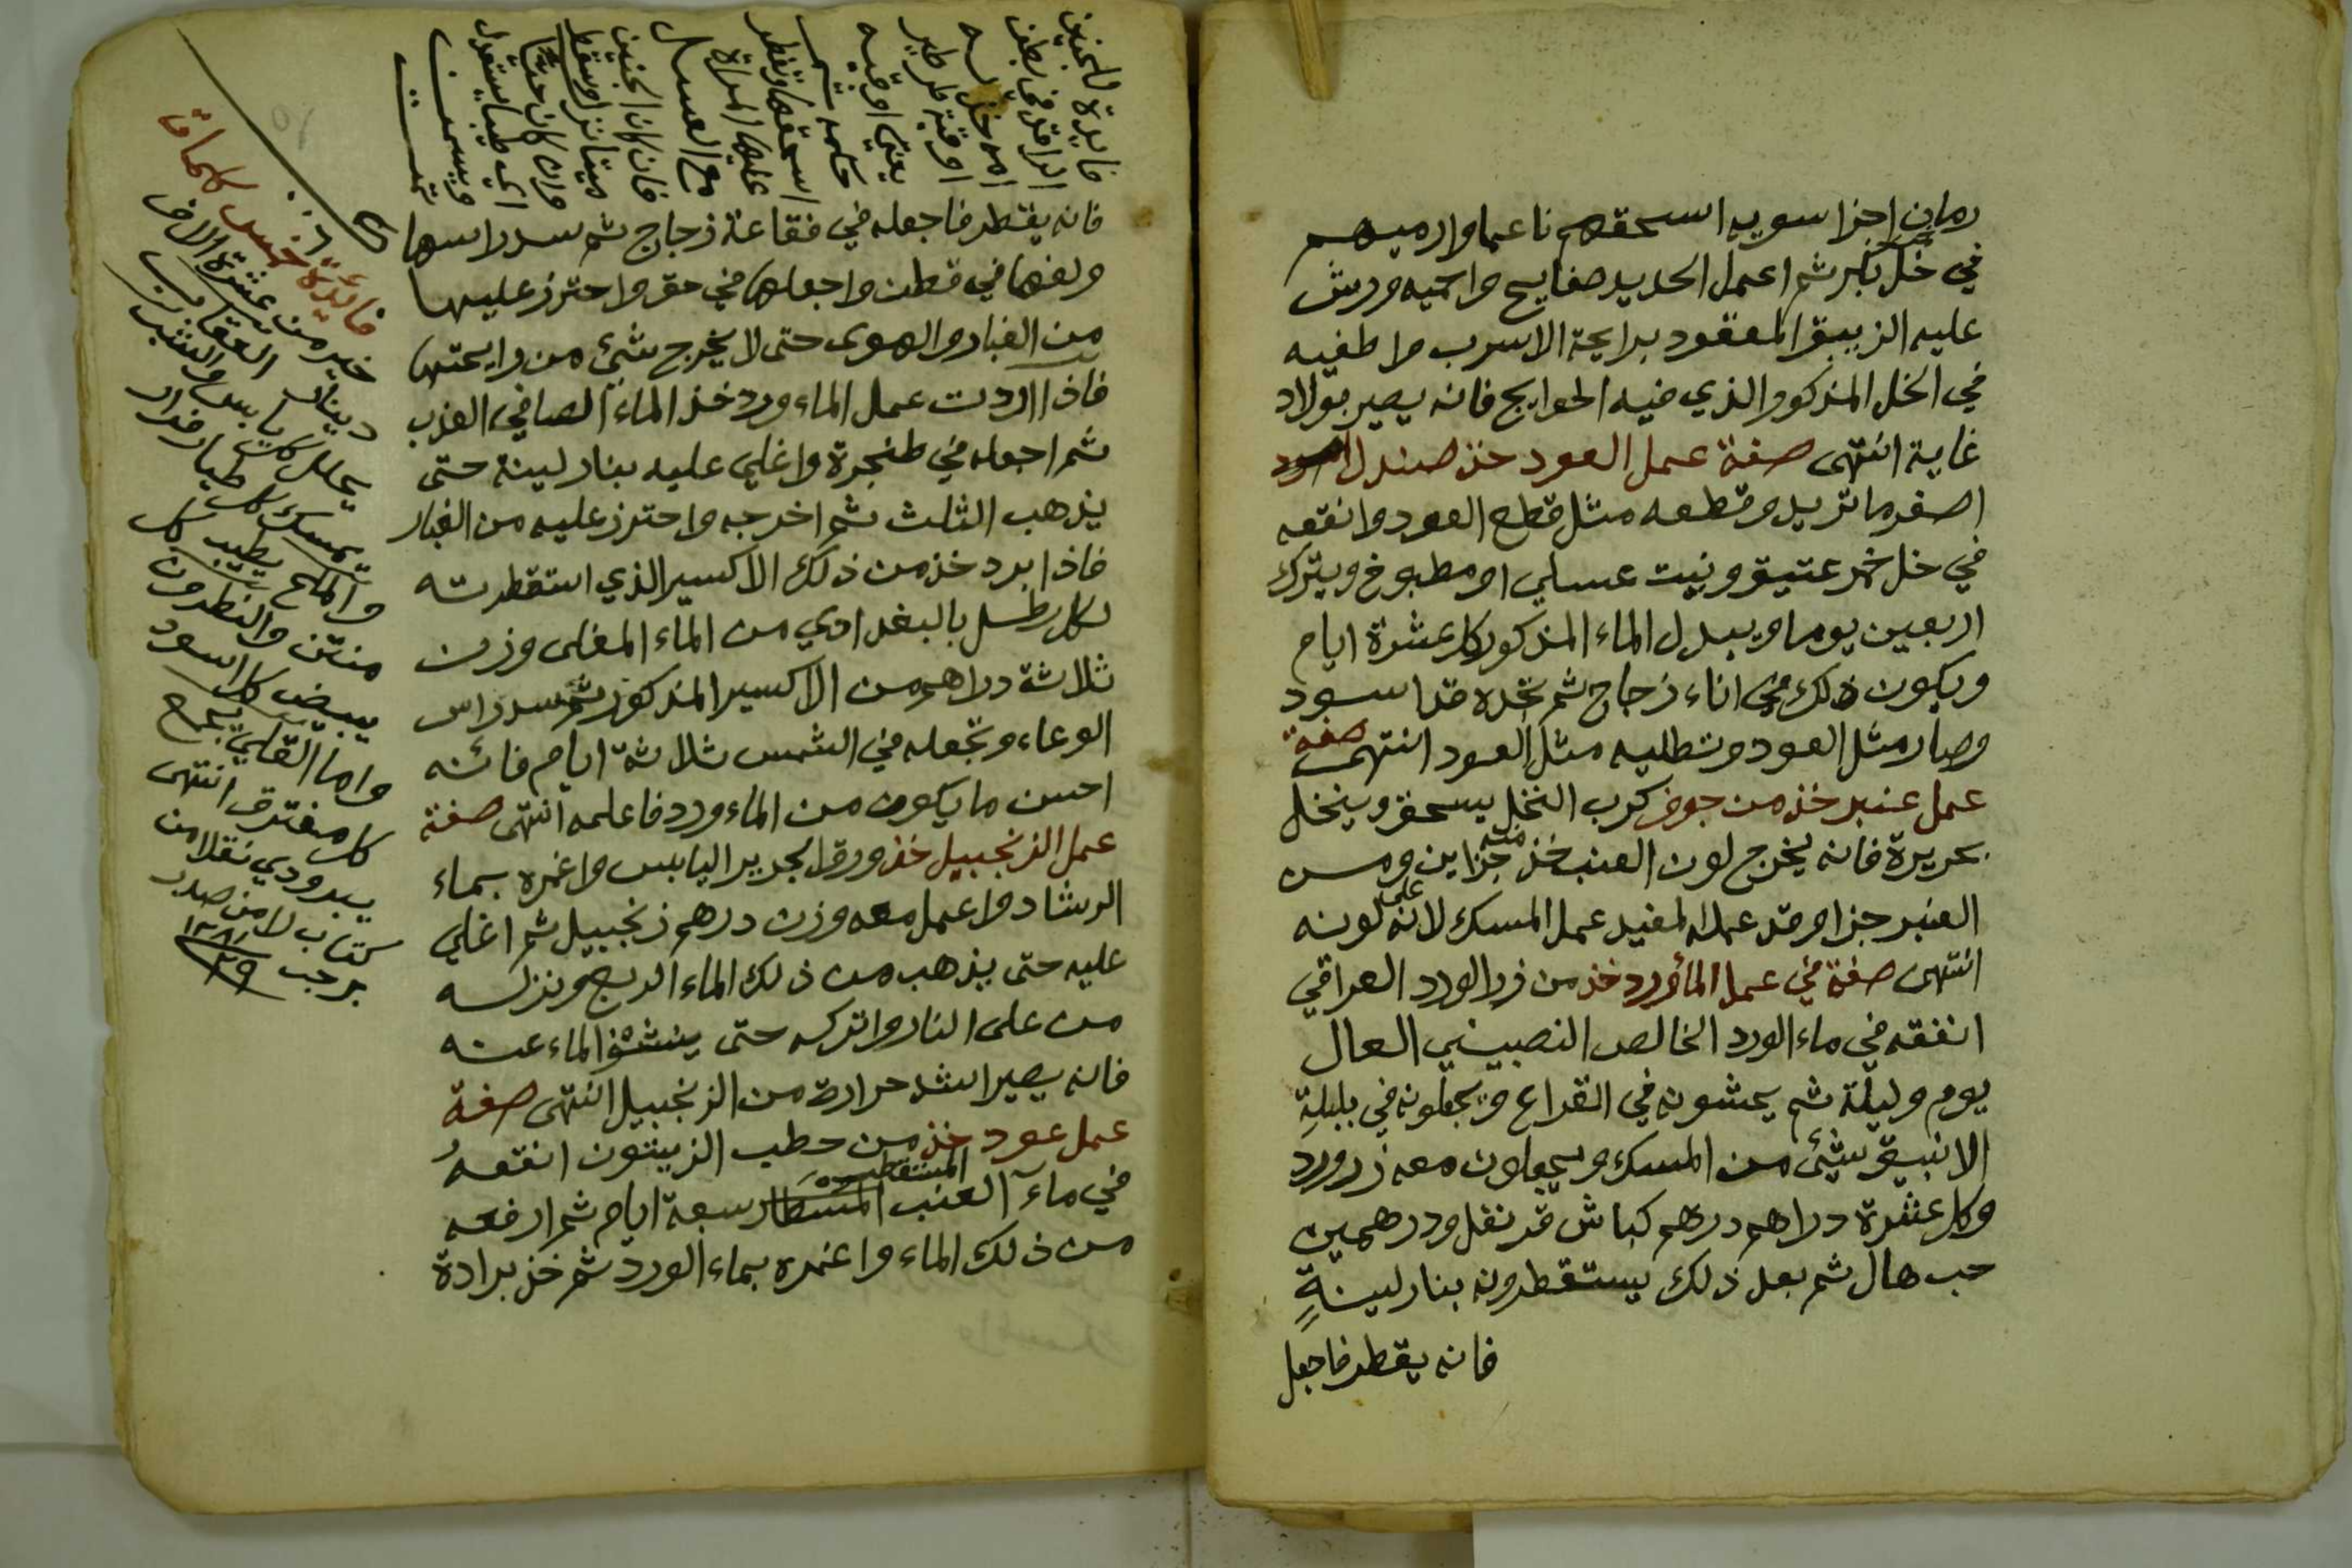 رمان اجزا سويه اسحقهم ناعما وارميهم
في خل بكر ثم اعمل الحديد صفايح واحميه ورش
عليه الزيبق المعقود برايحة الاسرب واطفيه
في الخل المذكور الذي فيه الحوايج فانه يصير بولاد
غاية انتهى صفة عمل العود خذ صندل
اصفر ما تريد وقطعه مثل قطع العود وانقعه
في خل خمر عتيق ونبيت عسلي او مطبوخ ويترك
اربعين يوما ويبدل الماء المذكور كل عشرة ايام
ويكون ذلك في اناء زجاج ثم تجده قد اسود
وصار مثل العود وتطليه مثل العود انتهى صفة
عمل عنبر خذ من جوف كرب النخل يسحق وينخل
بحريرة فانه يخرج لون العنبر خذ منه جزاين ومن
العنبر جزا وقد عمله المفيد عمل المسك لانه على لونه
انتهى صفة في عمل الماورد خذ من زر الورد العراقي
انقعه في ماء الورد الخالص النصيبيني العال
يوم وليلة ثم يحشونه في القراع ويجعلونه في بلبلة
الانبيق شئ من المسك ويجعلون معه زر ورد
وكل عشرة دراهم درهم كباش قرنفل ودرهمين
حب هال ثم بعد ذلك يستقطرونه بنار لينة
فانه يقطر فاجعل
فايدة للجنين
في بطن
امه خذ
اوقية
يعني اوقيه
اسحقها وتفطر
عليها المراة
مع العسل
فان كان الجنين
ميتا نزل وسقط
وان كان حيا
فانه يقطر فاجعله في فقاعة زجاج ثم سد راسها
ولفها في قطن واجعلها في حق واحترز عليها
من الغبار والهوى حتى لا يخرج شئ من رايحتها
فاذا اردت عمل الماء ورد خذ الماء الصافي العذب
ثم اجعله في طنجرة واغلي عليه بنار لينة حتى
يذهب الثلث ثم اخرجه واحترز عليه من الغبار
فاذا برد خذ من ذلك الاكسير الذي استقطرته
لكل رطل بالبغدادي من الماء المغلى وزن
ثلاثة دراهم من الاكسير المذكور ثم سد راس
الوعاء وتجعله في الشمس ثلاثة ايام فانه
احسن ما يكون من الماء ورد فاعلمه انتهى صفة
عمل الزنجبيل خذ ورق الجرير اليابس واغمره بماء
الرشاد واعمل معه وزن درهم زنجبيل ثم اغلي
عليه حتى يذهب من ذلك الماء الربع ونزله
من على النار واتركه حتى ينشف الماء عنه
فانه يصير اشد حرارة من الزنجبيل انتهى صفة
عمل عود خذ من حطب الزيتون انقعه
في مآء العنب المستقطر سبعة ايام ثم ارفعه
من ذلك الماء واغمره بماء الورد ثم خذ برادة
فائدة خمس كلمات
خير من عشرة الاف
دينار العقاب
يحلل كل يابس والشب
يمسك كل طيار فرار
والملح يطيب كل
منتن والنطرون
يبيض كل اسود
واما القلي يجمع
كل مفترق انتهى
نقلا من
كتاب